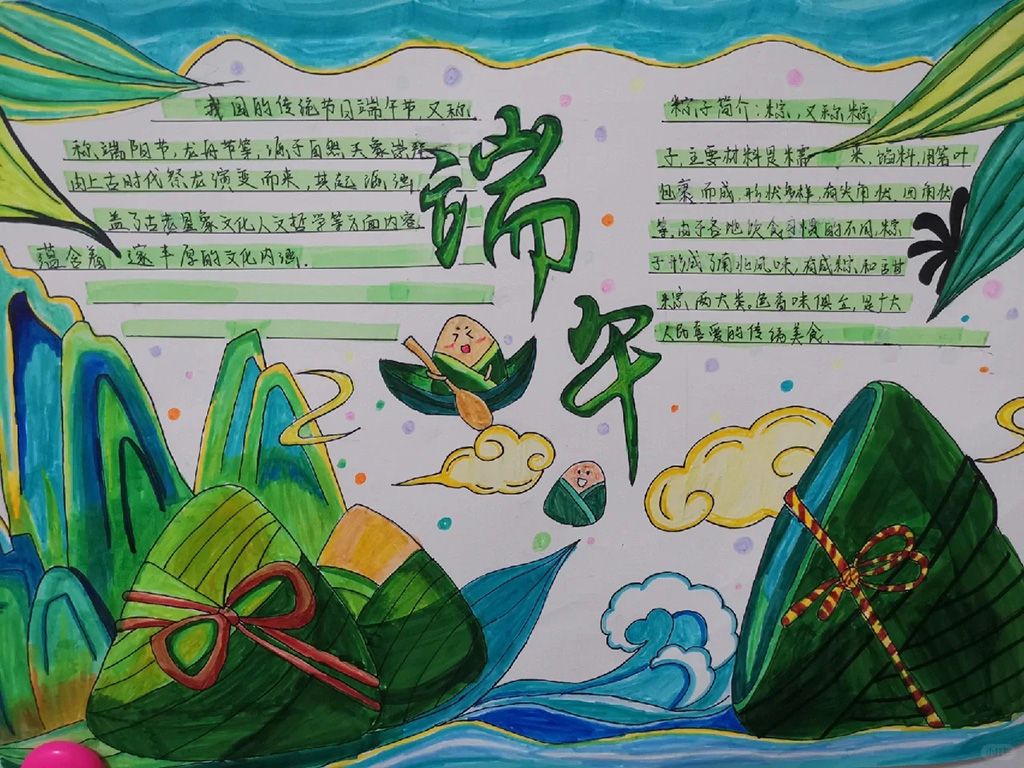 我国的传统节日端午节,又称
称端阳节,龙舟节等,源于自然天象崇拜
由上古时代祭龙演变而来,其起源涵
盖了古老星象文化人文哲学等方面内容
蕴含着 邃丰厚的文化内涵.
端
午
粽子简介:粽,又称粽
子,主要材料是米糯 米,馅料,用箬叶
包裹而成,形状多样,有尖角状,四角状
等,由于各地饮食习惯的不同,粽
子形成了南北风味,有咸粽,和 甘
粽,两大类。色香味俱全,是广大
人民喜爱的传统美食.